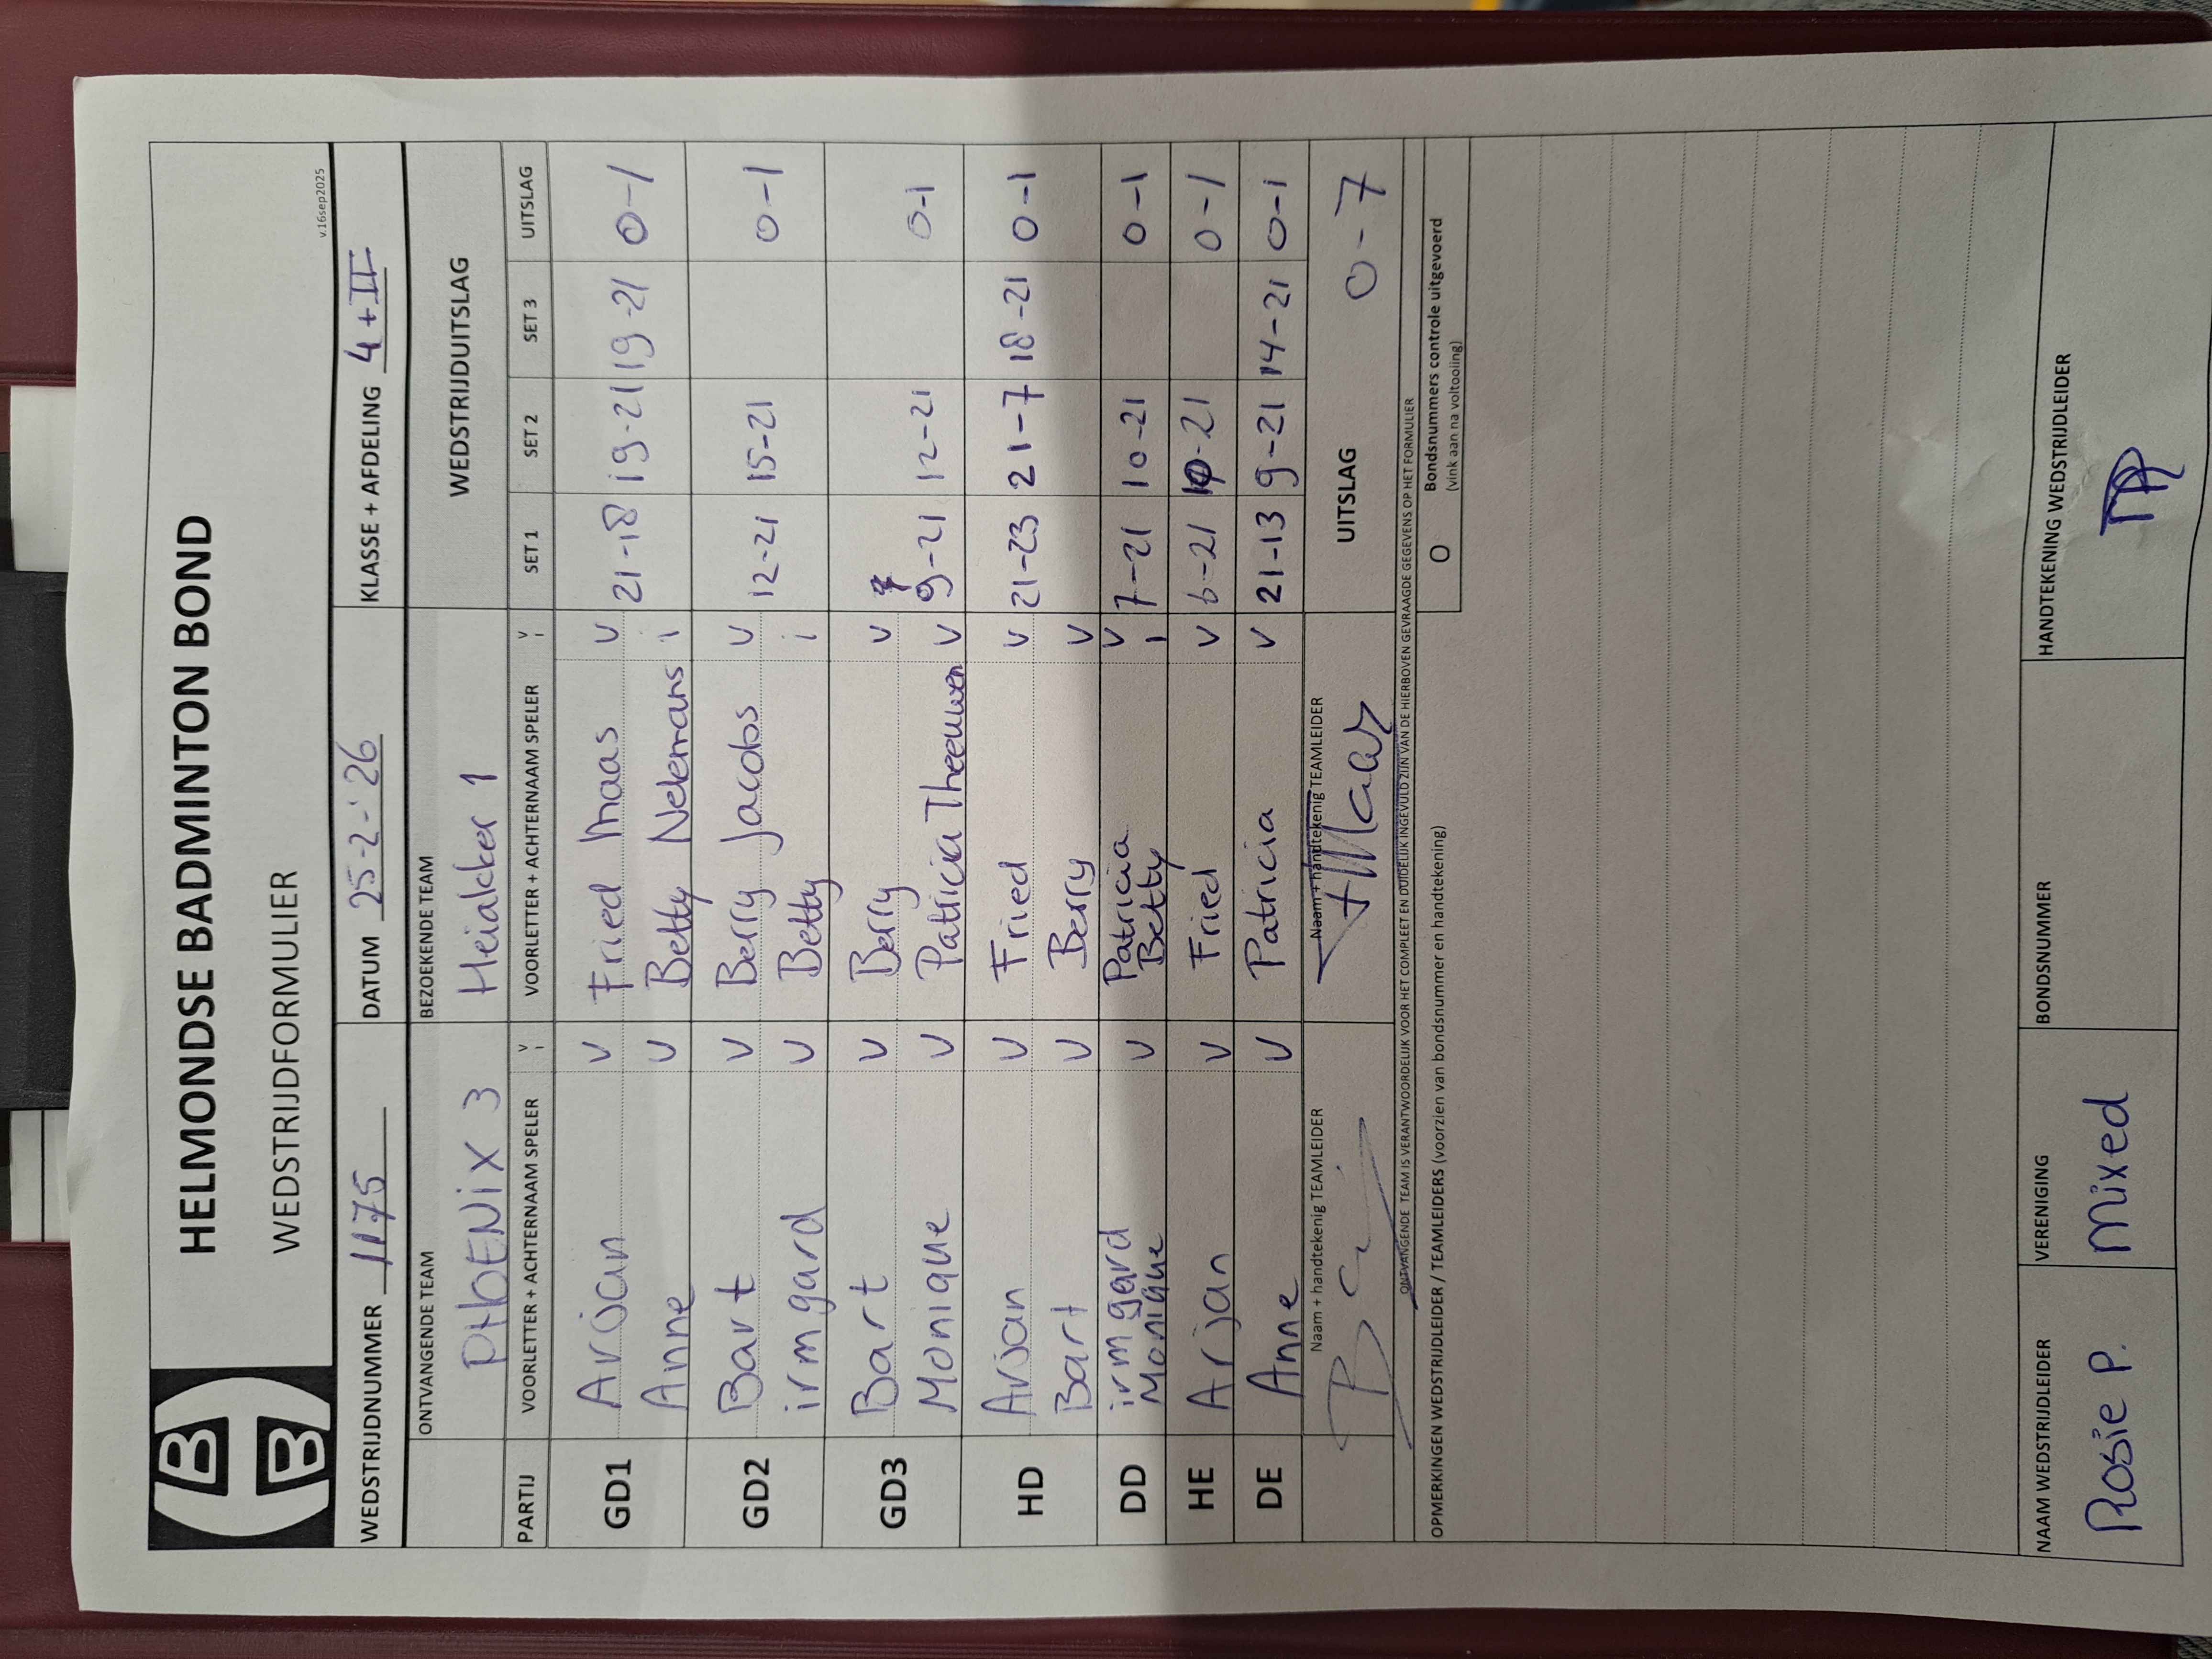 HELMONDSE BADMINTON BOND
WEDSTRIJDFORMULIER
v.16sep2025
WEDSTRIJDNUMMER 1175 DATUM 25-2-'26 KLASSE + AFDELING 4+II
ONTVANGENDE TEAM BEZOEKENDE TEAM WEDSTRIJDUITSLAG
PHOENIX 3 Heiakker 1
PARTIJ VOORLETTER + ACHTERNAAM SPELER V I VOORLETTER + ACHTERNAAM SPELER V I SET 1 SET 2 SET 3 UITSLAG
GD1 Arjan V Fried Maas V 21-18 19-21 19-21 0-1
Anne V Betty Nelemans i
GD2 Bart V Berry Jacobs V 12-21 15-21 0-1
irmgard V Betty i
GD3 Bart V Berry V
Monique V Patricia Theeuwen V 9-21 12-21 0-1
HD Arjan V Fried V 21-23 21-7 18-21 0-1
Bart V Berry V
DD irmgard V Patricia V 7-21 10-21 0-1
Monique Betty i
HE Arjan V Fried V 6-21 10-21 0-1
DE Anne V Patricia V 21-13 9-21 14-21 0-1
Naam + handtekenig TEAMLEIDER Naam + handtekenig TEAMLEIDER UITSLAG 0-7
ONTVANGENDE TEAM IS VERANTWOORDELIJK VOOR HET COMPLEET EN DUIDELIJK INGEVULD ZIJN VAN DE HIERBOVEN GEVRAAGDE GEGEVENS OP HET FORMULIER
OPMERKINGEN WEDSTRIJDLEIDER / TEAMLEIDERS (voorzien van bondsnummer en handtekening) O Bondsnummers controle uitgevoerd
(vink aan na voltooiing)
NAAM WEDSTRIJDLEIDER VERENIGING BONDSNUMMER HANDTEKENING WEDSTRIJDLEIDER
Rosie P. mixed